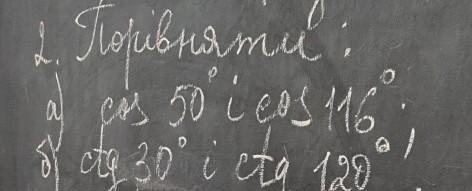 2. Порівняти:
а) cos 50° і cos 116°;
б) ctg 30° і ctg 120°!